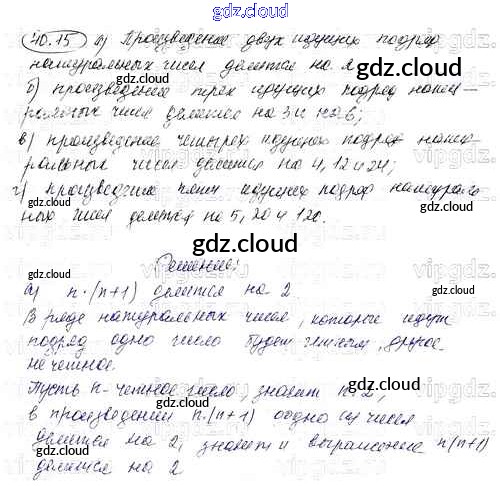 gdz.cloud
40.15 а) Произведение двух идущих подряд
натуральных чисел делится на 2
gdz.cloud
б) произведение трех идущих подряд нату-
ральных чисел делится на 3 и на 6;
в) произведение четырех идущих подряд нату-
ральных чисел делится на 4, 12 и 24;
г) произведение пяти идущих подряд натураль
ных чисел делится на 5, 20 и 120.
gdz.cloud
Решение:
а) n·(n+1) делится на 2
В ряде натуральных чисел, которые идут
подряд одно число будет четным, другое
нечетное
Пусть n-четное число, значит
в произведении n·(n+1) одно из чисел
делится на 2, значит и выражение n(n+1)
делится на 2
gdz.cloud